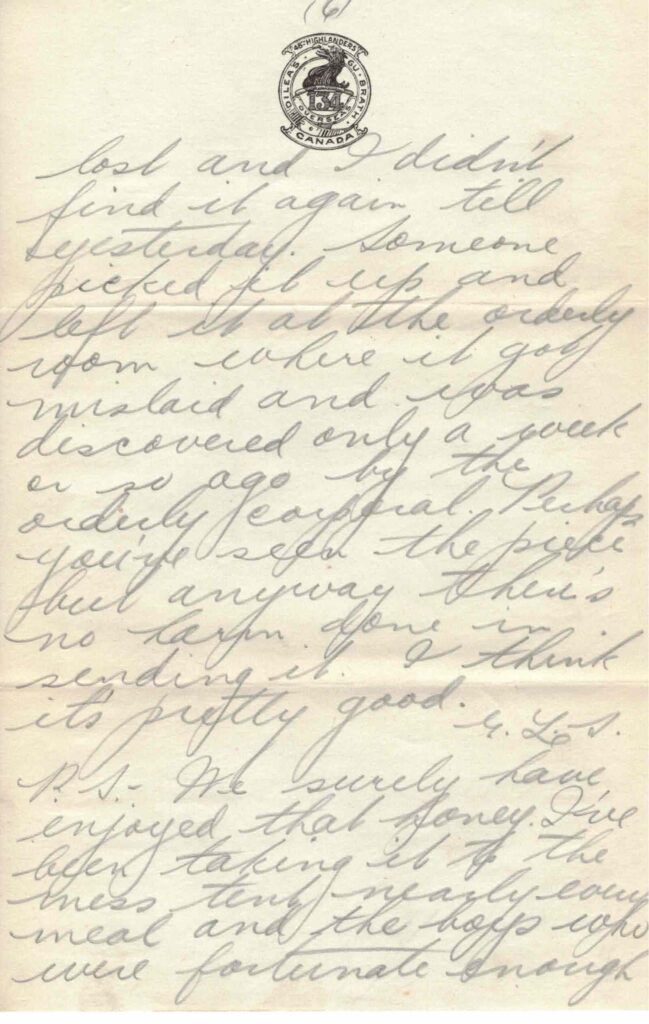 (6)
48TH HIGHLANDERS
DILEAS GU BRATH
134
OVERSEAS
CANADA
lost and I didn't
find it again till
yesterday. Someone
picked it up and
left it at the orderly
room where it got
mislaid and was
discovered only a week
or so ago by the
orderly corporal. Perhaps
you've seen the piece
but anyway there's
no harm done in
sending it. I think
it's pretty good.
L. S.
P.S.- We surely have
enjoyed that honey. I've
been taking it to the
mess tent nearly every
meal and the boys who
were fortunate enough